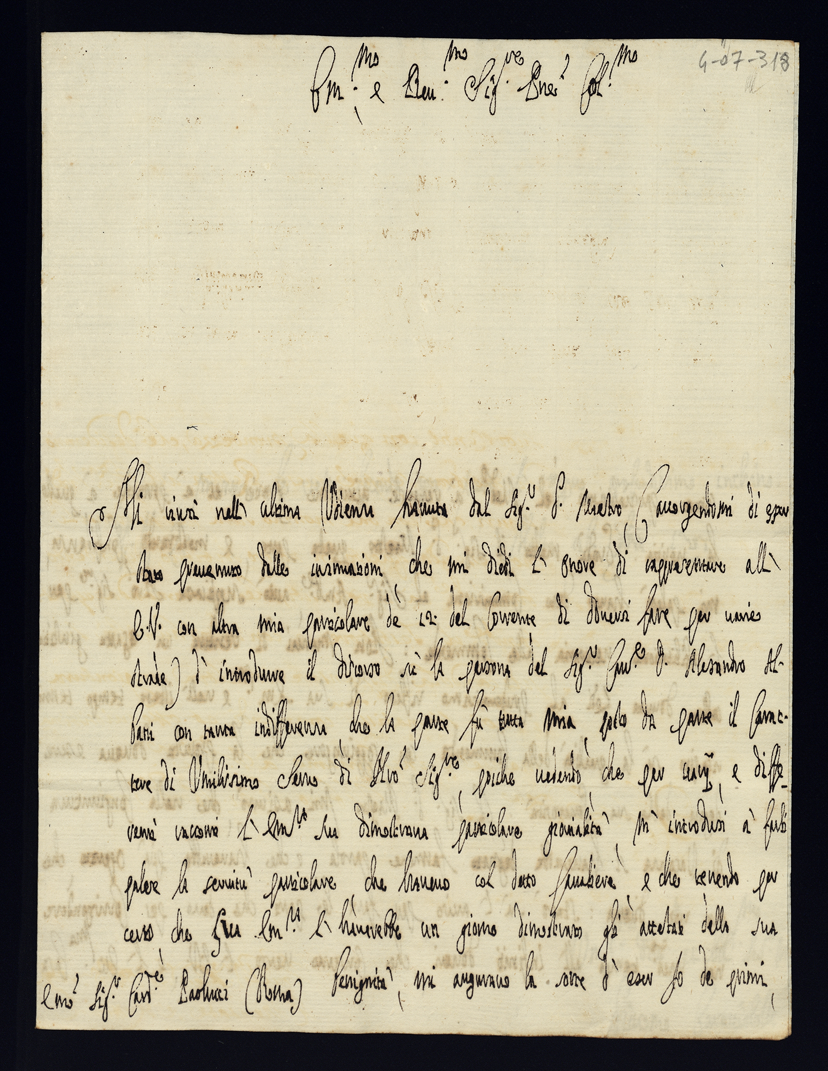 G-07-318
Em.mo e Reu.mo Sig.re Pne Col.mo
Mi riusì nell' ultima Udienza havuta dal Sig.r P. Mastro, (accorgendomi di esser
stato preuenuto dalle insinuazioni, che mi diedi l' onore di rappresentare all'
E.V. con altra mia particolare de 12 del Corrente di douersi fare per uarie
strade) d' introdurre il discorso sù la persona del Sig.r Cau.e D. Alesandro Al-
bani con tanta indifferenza, che la parte fù tutta mia, posto da parte il Carat-
tere di Umilissimo Seruo di Sig.re, poiche uedendo, che per uarij, e diffe-
renti racconti l' Em.za Sua dimostraua particolare giouialità, m' introdussi a farli
palese la seruitù particolare, che haueuo col detto Caualiere, e che tenendo per
certo, che Sua Em.za l' hauerebbe un giorno dimostrato gl' attestati della sua
Benignità, mi augurauo la sorte d' esser Io de primi,
Em.o Sig.r Card.e Paolucci (Roma)